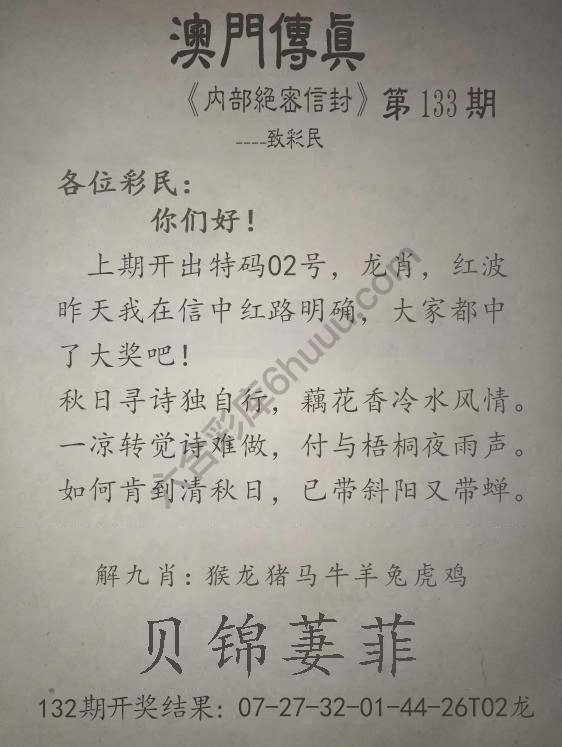 澳門傳眞
《内部絕密信封》第133期
----致彩民
各位彩民：
你们好！
上期开出特码02号，龙肖，红波
昨天我在信中红路明确，大家都中
了大奖吧！
秋日寻诗独自行，藕花香冷水风情。
一凉转觉诗难做，付与梧桐夜雨声。
如何肯到清秋日，已带斜阳又带蝉。
六合彩库6huuu.com
解九肖：猴龙猪马牛羊兔虎鸡
贝锦萋菲
132期开奖结果：07-27-32-01-44-26T02龙